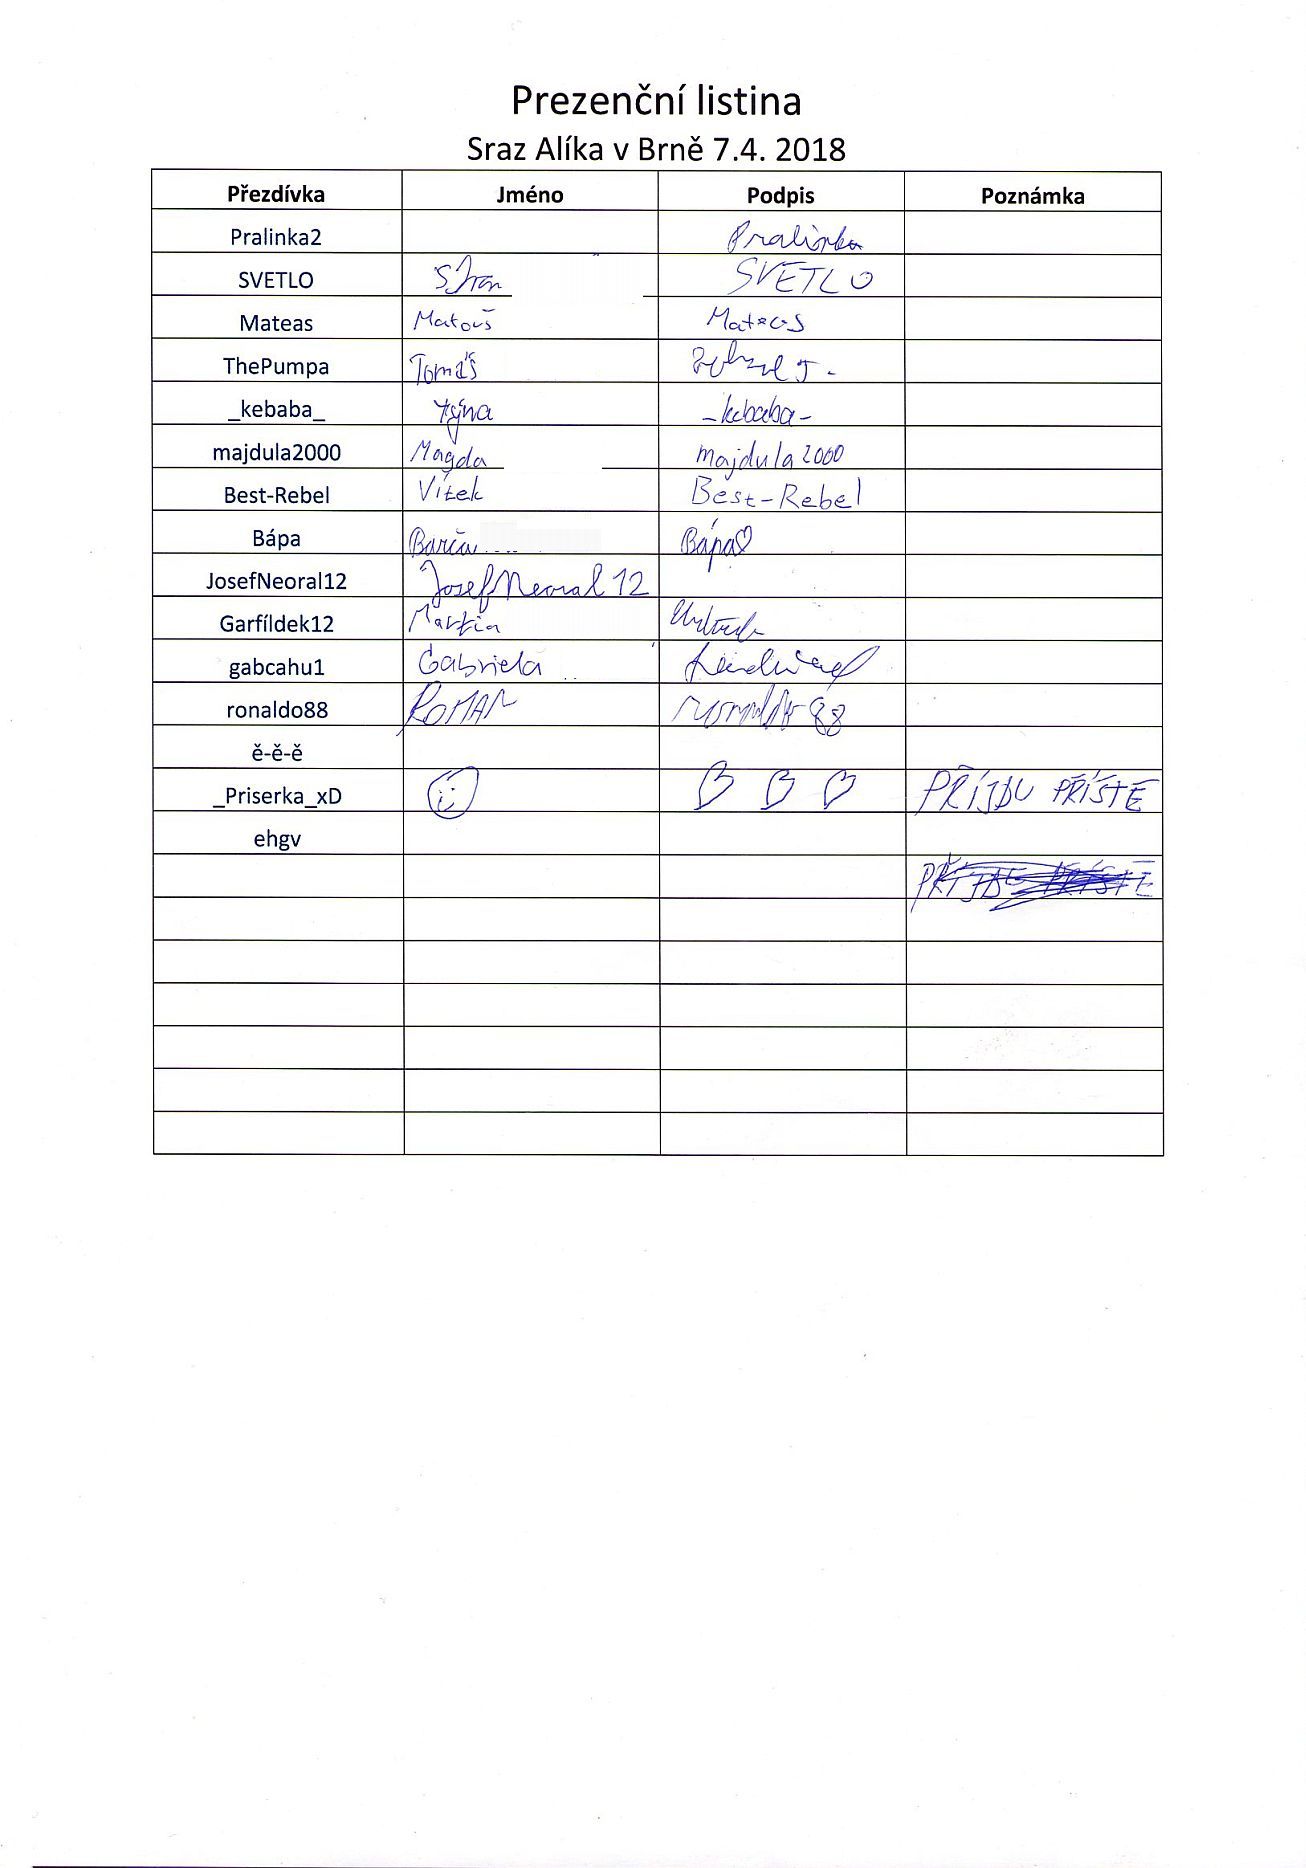 Prezenční listina
Sraz Alíka v Brně 7.4. 2018
Přezdívka Jméno Podpis Poznámka
Pralinka2 Pralinka
SVETLO SVETLO
Mateas Matouš Mateas
ThePumpa Tomáš
_kebaba_ Týna _kebaba_
majdula2000 Magda majdula2000
Best-Rebel Vítek Best-Rebel
Bápa Barča Bápa♡
JosefNeoral12 JosefNeoral12
Garfíldek12 Martin
gabcahu1 Gabriela
ronaldo88 ROMAN ronaldo88
ě-ě-ě
_Priserka_xD PŘÍJDU PŘÍŠTĚ
ehgv
PŘÍJDU PŘÍŠTĚ